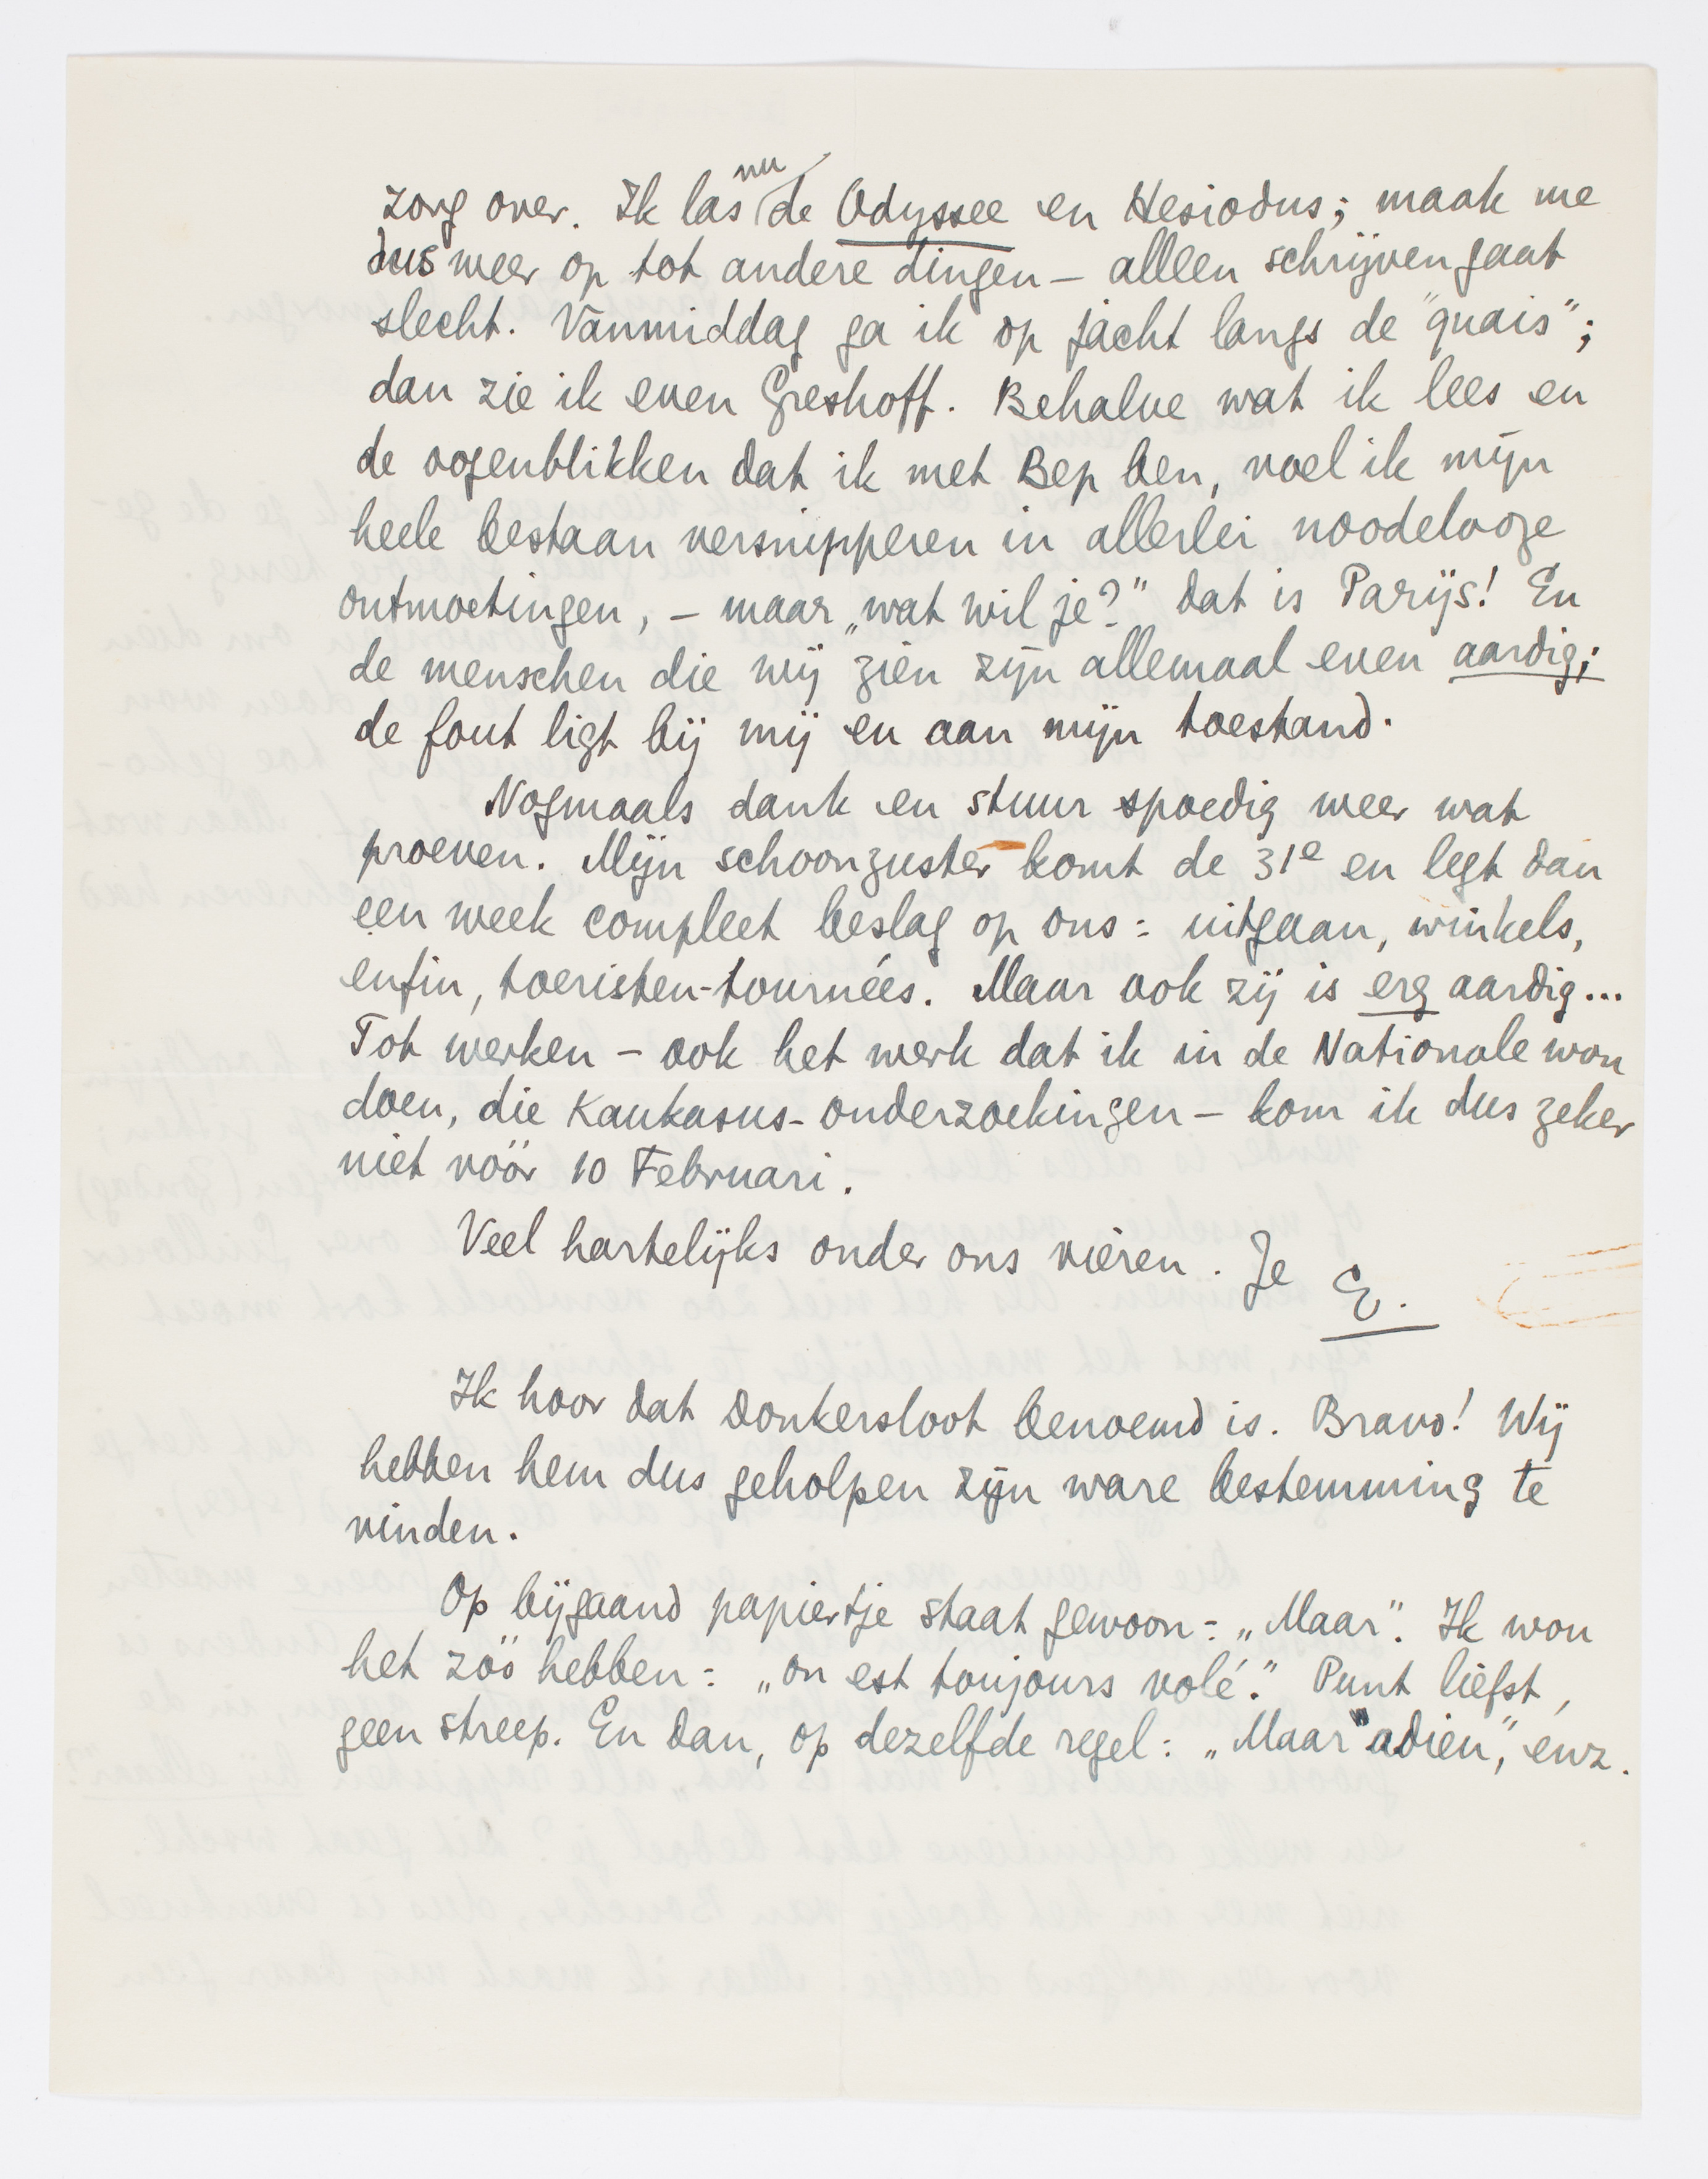 zorg over. Ik las nu de Odyssee en Hesiodus; maak me
dus weer op tot andere dingen – alleen schrijven gaat
slecht. Vanmiddag ga ik op jacht langs de "quais";
dan zie ik even Greshoff. Behalve wat ik lees en
de oogenblikken dat ik met Bep ben, voel ik mijn
heele bestaan versnipperen in allerlei noodelooze
ontmoetingen, – maar „wat wil je?" dat is Parijs! En
de menschen die wij zien zijn allemaal even aardig;
de fout ligt bij mij en aan mijn toestand.
Nogmaals dank en stuur spoedig weer wat
proeven. Mijn schoonzuster komt de 31e en legt dan
een week compleet beslag op ons: uitgaan, winkels,
enfin, toeristen-tournées. Maar ook zij is erg aardig...
Tot werken – ook het werk dat ik in de Nationale wou
doen, die Kaukasus-onderzoekingen – kom ik dus zeker
niet vóór 10 Februari.
Veel hartelijks onder ons vieren. Je E.
Ik hoor dat Donkersloot benoemd is. Bravo! Wij
hebben hem dus geholpen zijn ware bestemming te
vinden.
Op bijgaand papiertje staat gewoon: „Maar". Ik wou
het zóó hebben: „on est toujours volé." Punt liefst,
geen streep. En dan, op dezelfde regel: „Maar "adieu", enz.